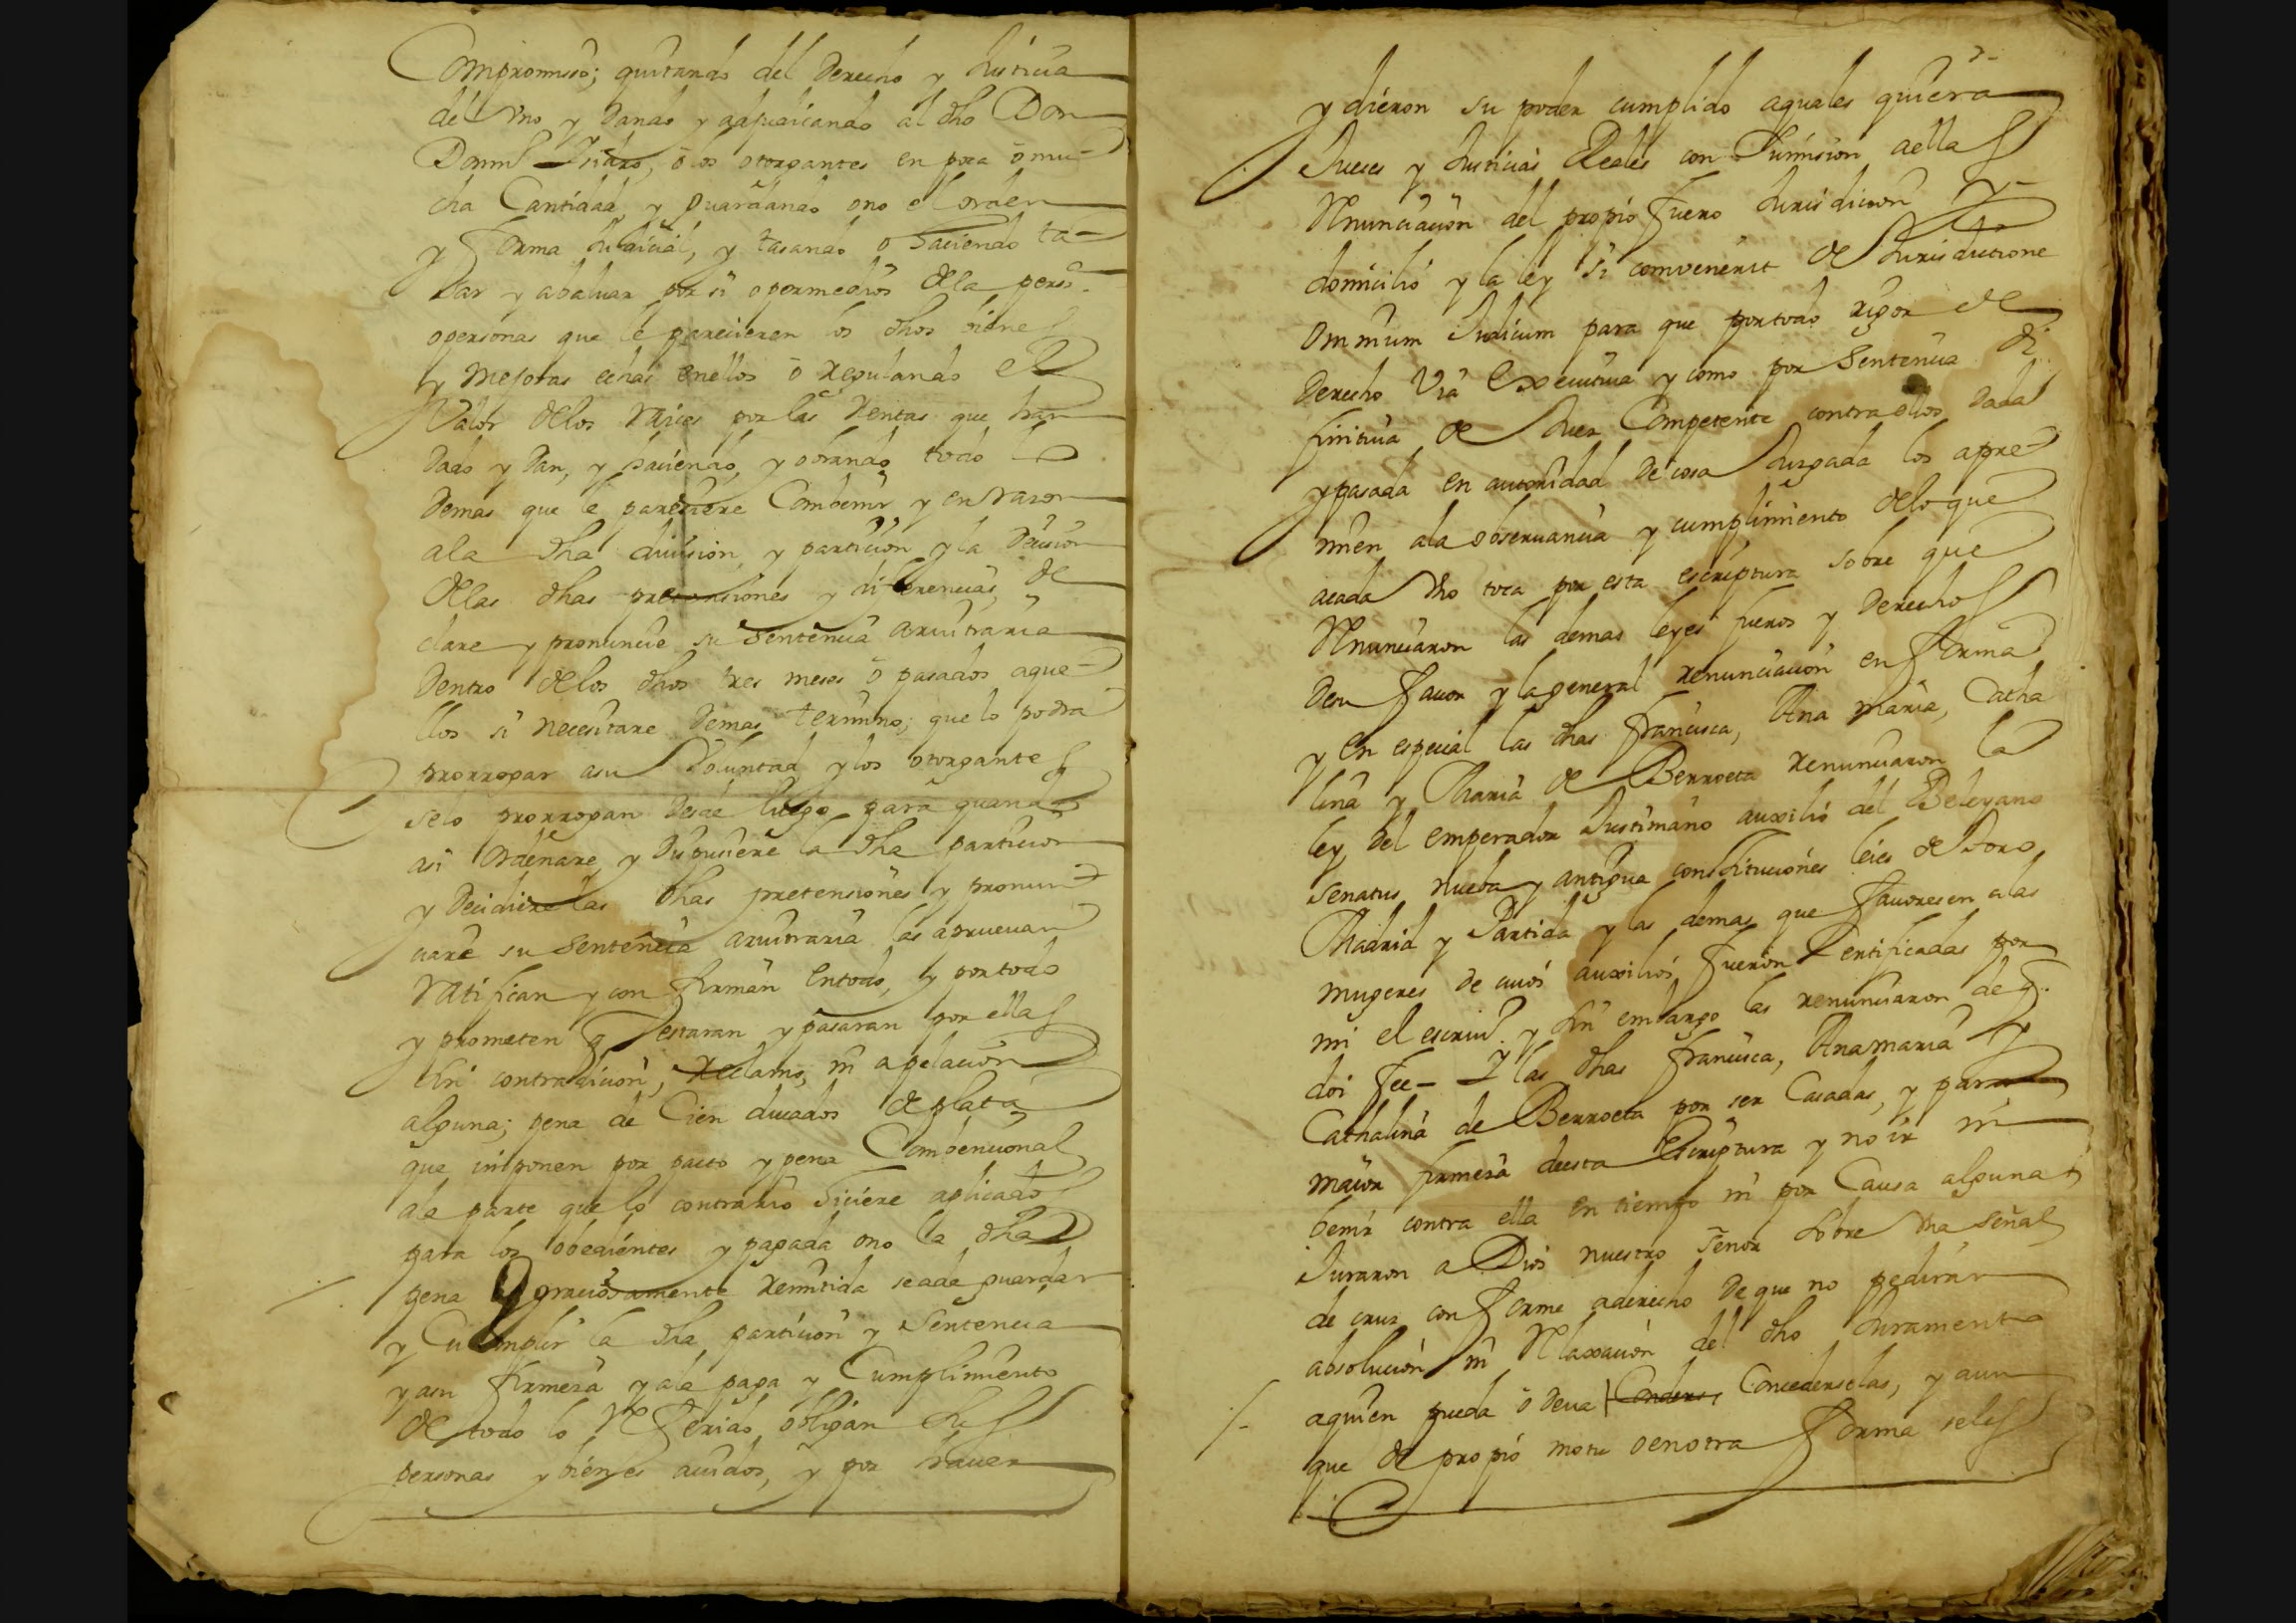 Compromiso; quitando del derecho y Justicia
del vno y dando y adjudicando al dho Don
Domi.º Isidro, ō los otorgantes en poca ō mu-
cha Cantidad y guardando ono el orden
y forma Judicial, y tasando o haciendo ta-
sar y abaluar por si o por medios dela perss.ª
opersonas que le parecieren los dhos bienes
y mejoras echas enellos ō regulando el
Valor delos raices por las rentas que han
dado y dan, y haciendo, y obrando todo lo
demas que le pareciere Combenir y en rason
ala dha diuision y particion y la decision
delas dhas pretensiones y diferencias, de
clare y pronuncie su sentencia aruitraria
dentro delos dhos tres meses ō pasados aque-
llos si necesitare demas termino; que lo podra
prorrogar asu Voluntad y los otorgantes
selo prorrogan desde luego para quando
asi ordenare y dispusiere la dha particion
y decidiere las dhas pretensiones y pronun-
ciare su sentencia aruitraria las aprueuan
ratifican y con firman entodo, y portodo
y prometen q estaran y pasaran por ellas
sin contradicion, reclamo, ni apelacion
alguna; pena de Cien ducados de plata
que imponen por pacto y pena Combencional
ala parte que lo contrario hiciere aplicados
para los obedientes y pagada ono la dha
pena o graciosamente remitida seade guardar
y Cumplir la dha particion y Sentencia
y asu firmesa y ala paga y Cumplimiento
de todo lo referido obligan sus
personas y bienes auidos, y por hauer
y dieron su poder cumplido aquales quiera
Jueses y Justicias Reales con Sumision aellas
renunciacion del propio fuero Jurisdicion y-
domicilio y la ley si convenerit de Jurisdictione
omnium Judicum para que portodo rigor de
derecho via executiva y como por sentencia di
finitiua de Juez Competente contra ellos dada
ypasada en autoridad de cosa Jusgada los apre-
mien ala obseruancia y cumplimiento delo que
acada vno toca por esta escriptura sobre que
renunciaron las demas leyes fueros y derechos
desu fauor y la general renunciacion en forma
y en especial las dhas francisca, Ana maria, Catha
lina y Maria de Berroeta renunciaron la
ley del emperador Justiniano auxilio del Beleyano
senatus nueba y antigua constituciones leies de Toro,
Madrid y Partida y las demas que fauoresen alas
mugeres de cuios auxilios fueron certificadas por
mi el escriu.º y sin embargo las renunciaron de q.
doi fee- Y las dhas francisca, Ana maria y
Cathalina de Berroeta por ser Casadas, y para
maior firmesa deesta Escriptura y no ir ni
benir contra ella en tiempo ni por Causa alguna
Juraron a Dios nuestro señor sobre vna señal
de cruz conforme aderecho de que no pediran
absolucion ni relaxacion del dho Juramento
aquien pueda ō deua Conders, Concederselas, y aun
que de propio motu o en otra forma seles